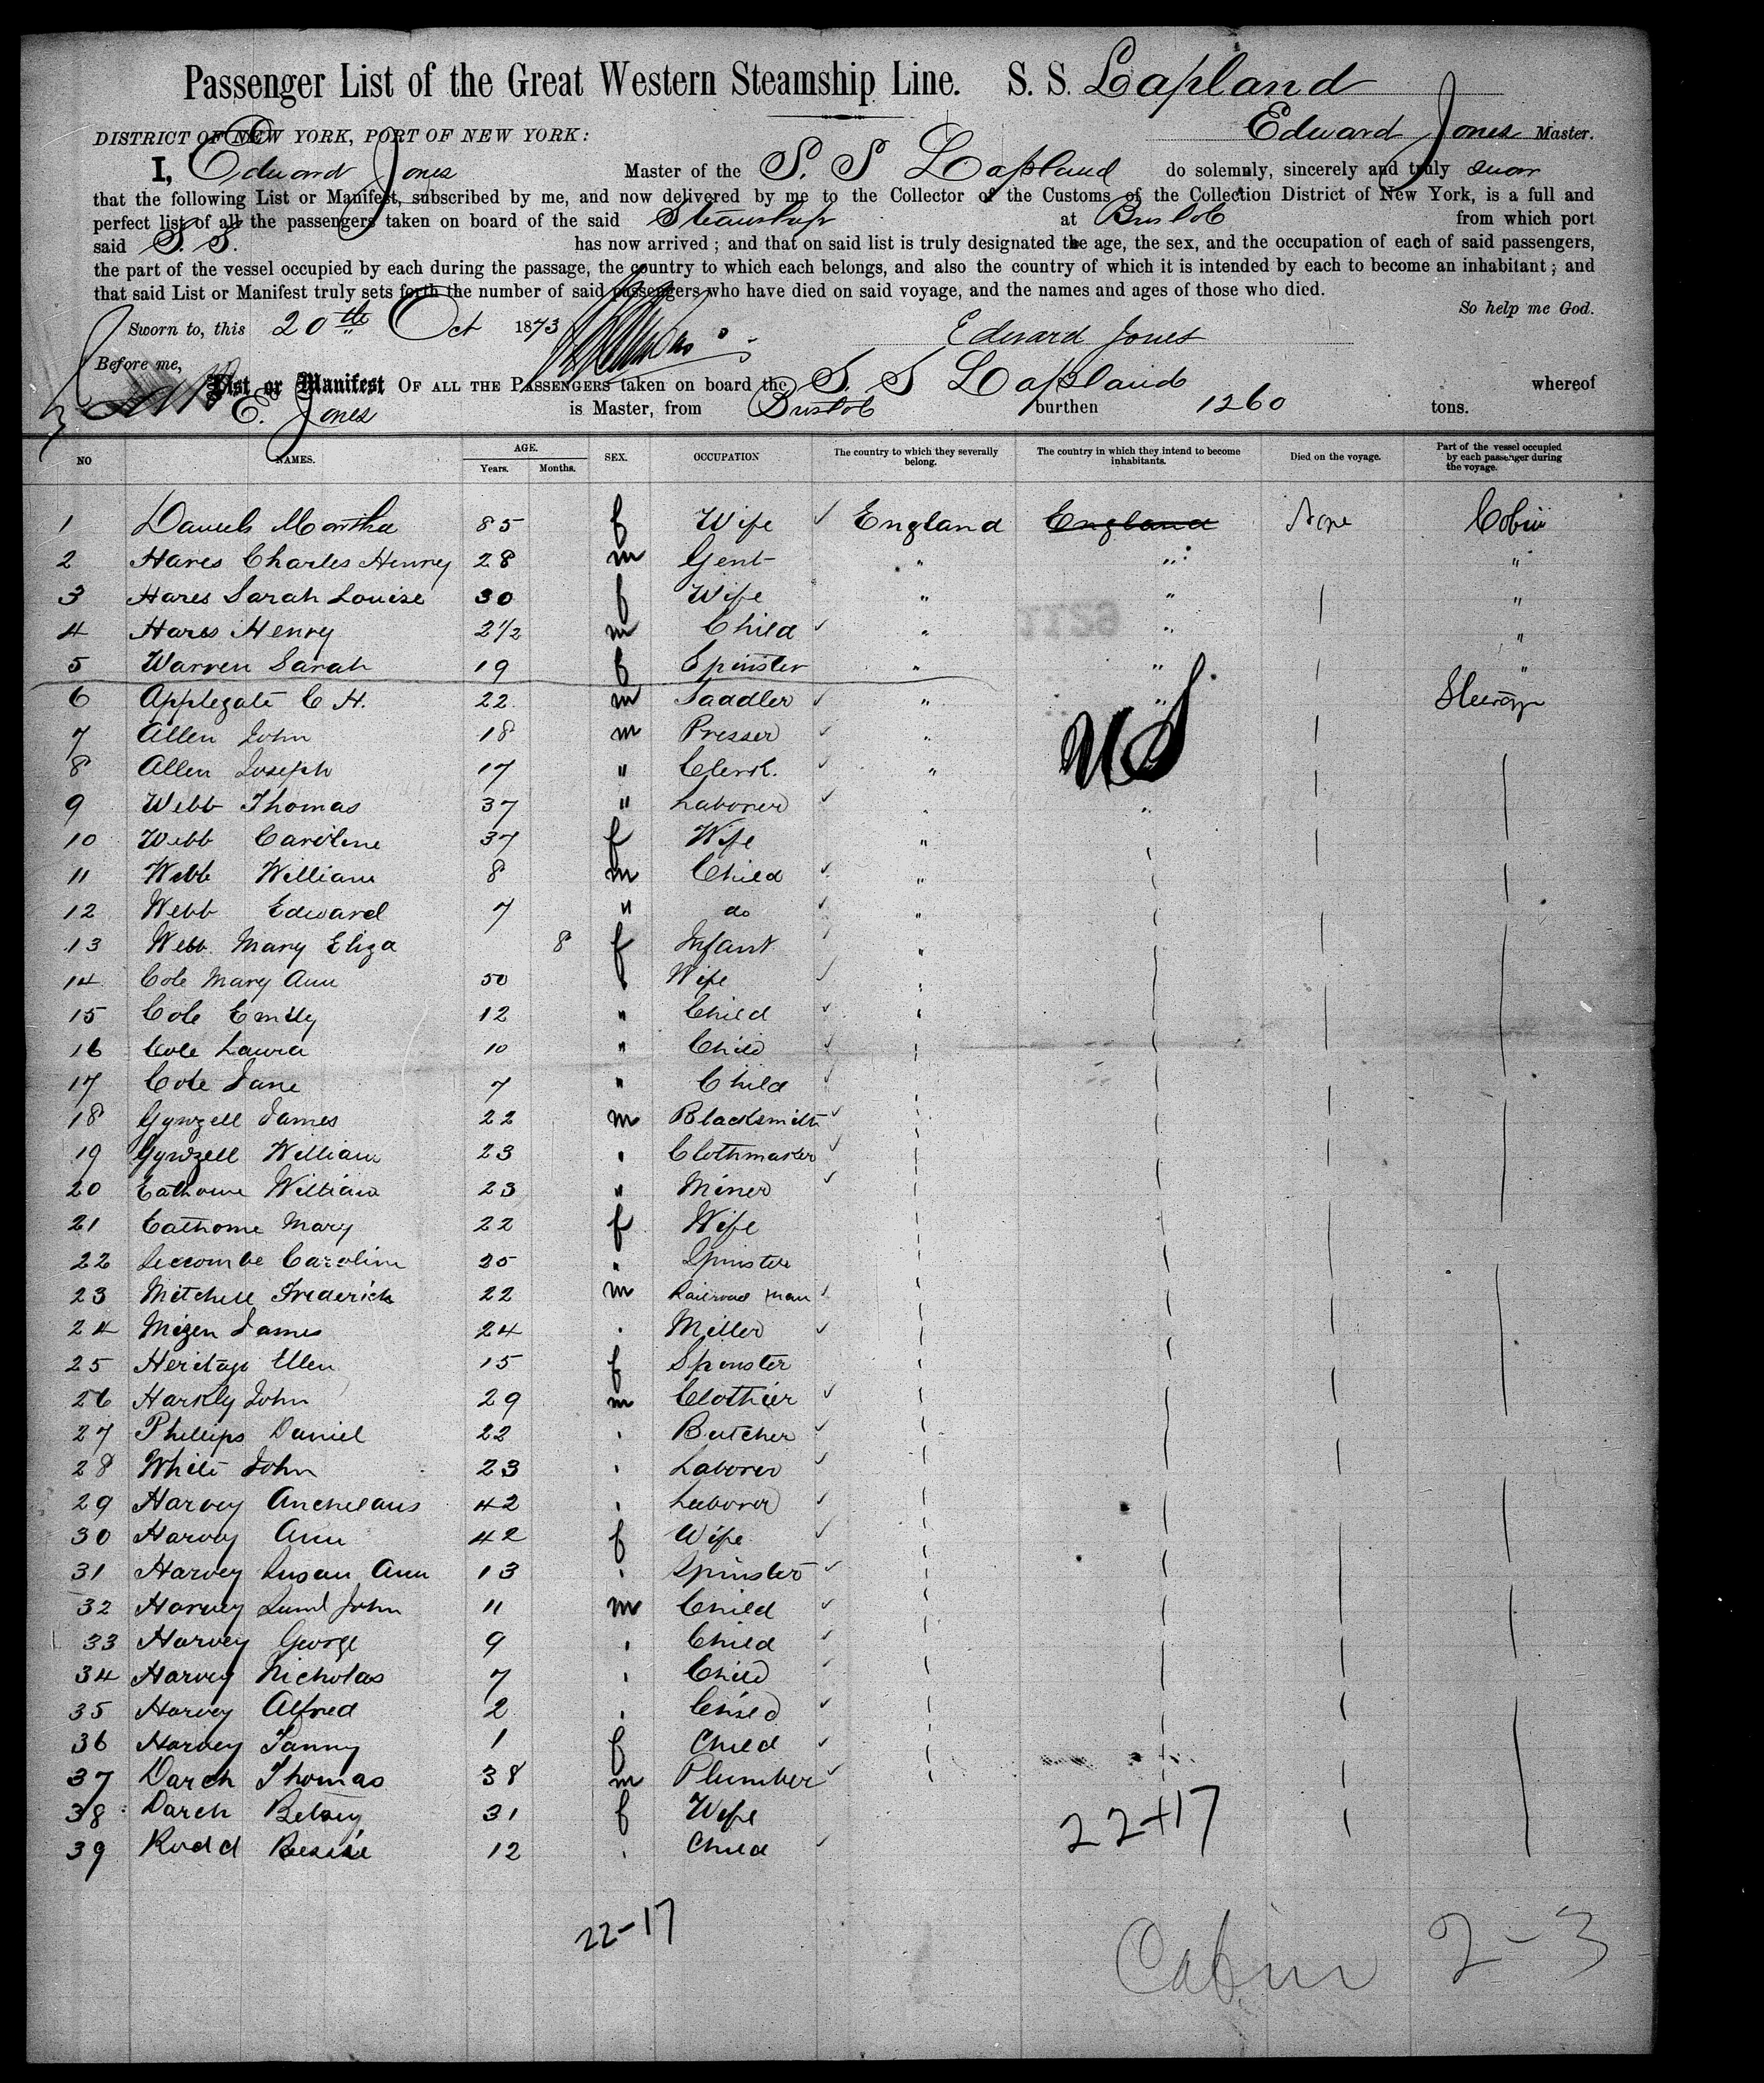 Passenger List of the Great Western Steamship Line. S. S. Lapland
DISTRICT OF NEW YORK, PORT OF NEW YORK: Edward Jones Master.
I, Edward Jones Master of the S. S Lapland do solemnly, sincerely and truly swear
that the following List or Manifest, subscribed by me, and now delivered by me to the Collector of the Customs of the Collection District of New York, is a full and
perfect list of all the passengers taken on board of the said Steamship at Bristol from which port
said S. S. has now arrived; and that on said list is truly designated the age, the sex, and the occupation of each of said passengers,
the part of the vessel occupied by each during the passage, the country to which each belongs, and also the country of which it is intended by each to become an inhabitant; and
that said List or Manifest truly sets forth the number of said passengers who have died on said voyage, and the names and ages of those who died.
So help me God.
Sworn to, this 20th Oct 1873
Edward Jones
Before me,
List or Manifest OF ALL THE PASSENGERS taken on board the S. S Lapland whereof
E. Jones is Master, from Bristol burthen 1260 tons.
NO NAMES. AGE. Years. Months. SEX. OCCUPATION The country to which they severally belong. The country in which they intend to become inhabitants. Died on the voyage. Part of the vessel occupied by each passenger during the voyage.
1 Daniels Martha 85 f Wife England England None Cabin
2 Hares Charles Henry 28 m Gent " " "
3 Hares Sarah Louise 30 f Wife " " "
4 Hares Henry 2 1/2 m Child " " "
5 Warren Sarah 19 f Spinster " " "
6 Applegate C H. 22 m Saddler " " Steerage
7 Allen John 18 m Presser "
US
8 Allen Joseph 17 " Clerk. "
9 Webb Thomas 37 " Laborer " "
10 Webb Caroline 37 f Wife "
11 Webb William 8 m Child "
12 Webb Edward 7 " do "
13 Webb Mary Eliza 8 f Infant "
14 Cole Mary Ann 50 " Wife "
15 Cole Emily 12 " Child "
16 Cole Laura 10 " Child
17 Cole Jane 7 " Child
18 Gywzell James 22 m Blacksmith
19 Gywzell William 23 " Clothmaker
20 Eathorne William 23 " Miner
21 Eathorne Mary 22 f Wife
22 Seccombe Caroline 25 " Spinster
23 Mitchell Frederick 22 m Railroad man
24 Mizen James 24 " Miller
25 Heritage Ellen 15 f Spinster
26 Harkly John 29 m Clothier
27 Phillips Daniel 22 " Butcher
28 White John 23 " Laborer
29 Harvey Anchelaus 42 " Laborer
30 Harvey Ann 42 f Wife
31 Harvey Susan Ann 13 " Spinster
32 Harvey John 11 m Child
33 Harvey George 9 " Child
34 Harvey Nicholas 7 " Child
35 Harvey Alfred 2 " Child
36 Harvey Fanny 1 f Child
37 Darch Thomas 38 m Plumber
38 Darch Betsey 31 f Wife
39 Rudd Bessie 12 " Child
22+17
22-17
Cabin 2-3